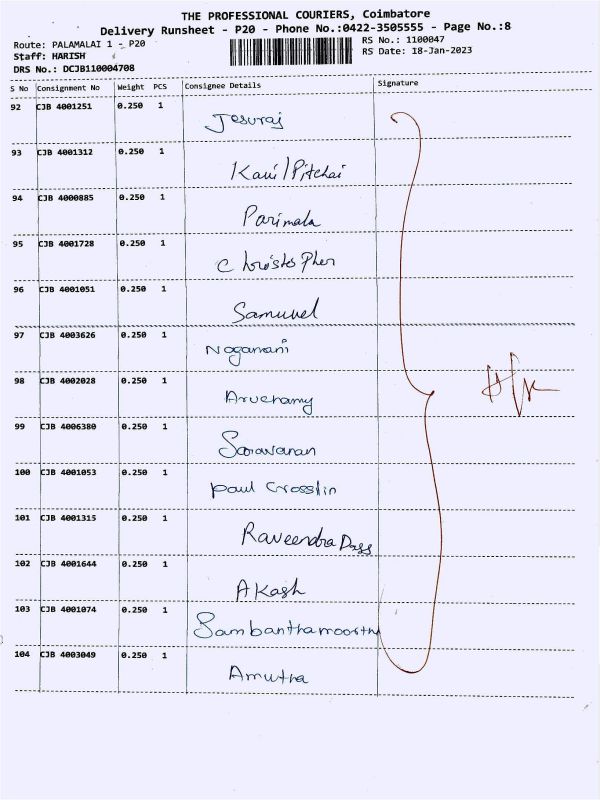 THE PROFESSIONAL COURIERS, Coimbatore
Delivery Runsheet - P20 - Phone No.:0422-3505555 - Page No.:8
Route: PALAMALAI 1 - P20
RS No.: 1100047
Staff: HARISH
RS Date: 18-Jan-2023
DRS No.: DCJB110004708
S No Consignment No Weight PCS Consignee Details Signature
92 CJB 4001251 0.250 1 Jesuraj
93 CJB 4001312 0.250 1 Kavi/Pitchai
94 CJB 4000885 0.250 1 Parimala
95 CJB 4001728 0.250 1 Christopher
96 CJB 4001051 0.250 1 Samuvel
97 CJB 4003626 0.250 1 Nagamani
98 CJB 4002028 0.250 1 Aruchamy
99 CJB 4006380 0.250 1 Saravanan
100 CJB 4001053 0.250 1 Paul Crosslin
101 CJB 4001315 0.250 1 Raveendra Dass
102 CJB 4001644 0.250 1 Akash
103 CJB 4001074 0.250 1 Sambanthamoorthy
104 CJB 4003049 0.250 1 Amutha